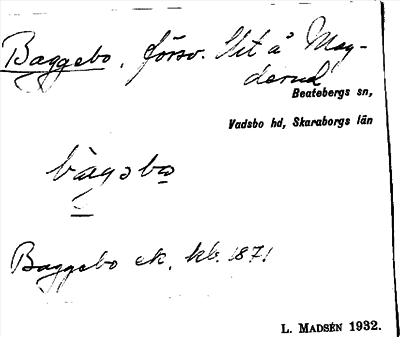 Baggebo, försv. lht å Mag-
derud
Beatebergs sn,
Vadsbo hd, Skaraborgs län
bàgsbo
Baggebo ek. kb. 1871
L. MADSÉN 1932.